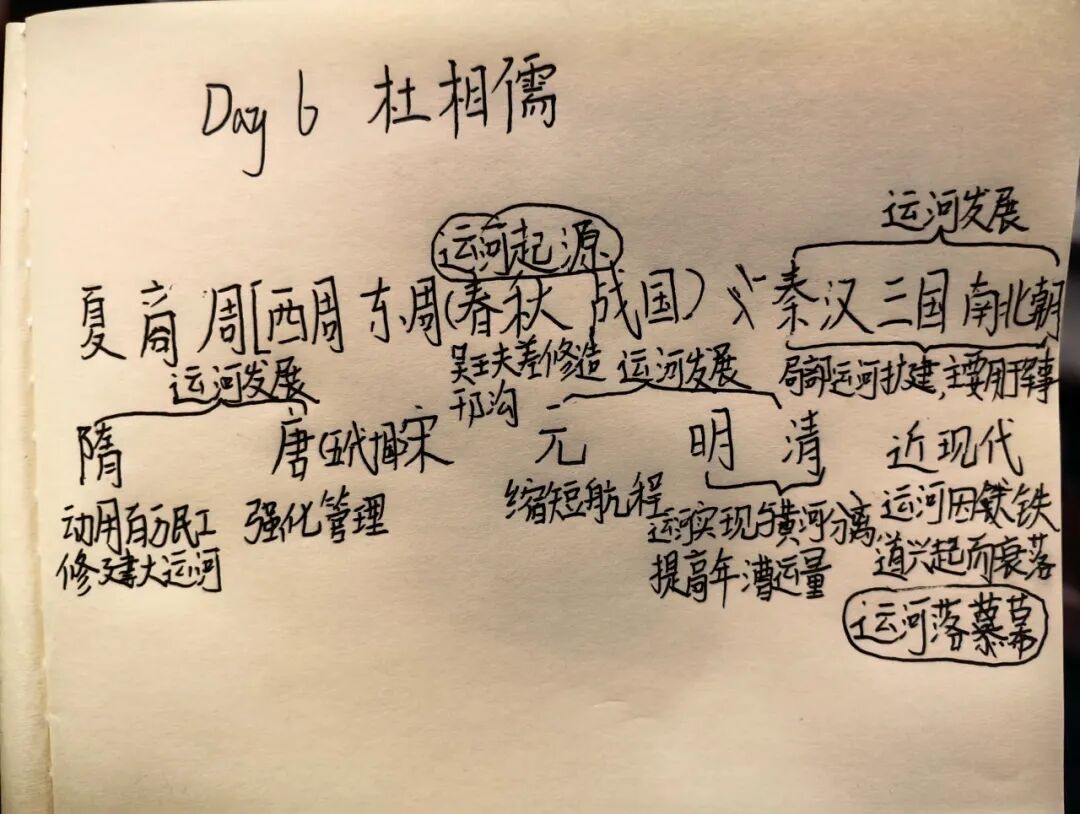 Day 6 杜相儒
运河发展
运河起源
夏 商 周[西周 东周(春秋 战国) 秦 汉 三国 南北朝
吴王夫差修造
邗沟
局部运河扩建,主要用于军事
运河发展
运河发展
隋 唐 宋 元 明 清 近现代
动用百万民工
修建大运河
强化管理
缩短航程
运河实现与黄河分离
提高年漕运量
运河因铁
道兴起而衰落
运河落幕